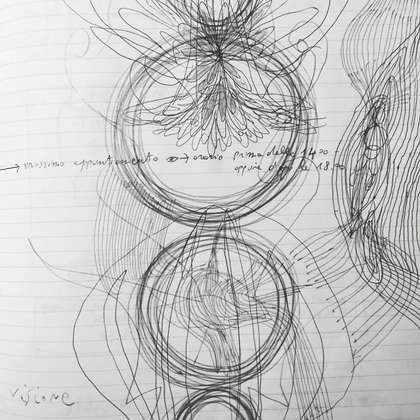 → prossimo appuntamento → orario prima delle 14.00
oppure dopo le 18.00
visione